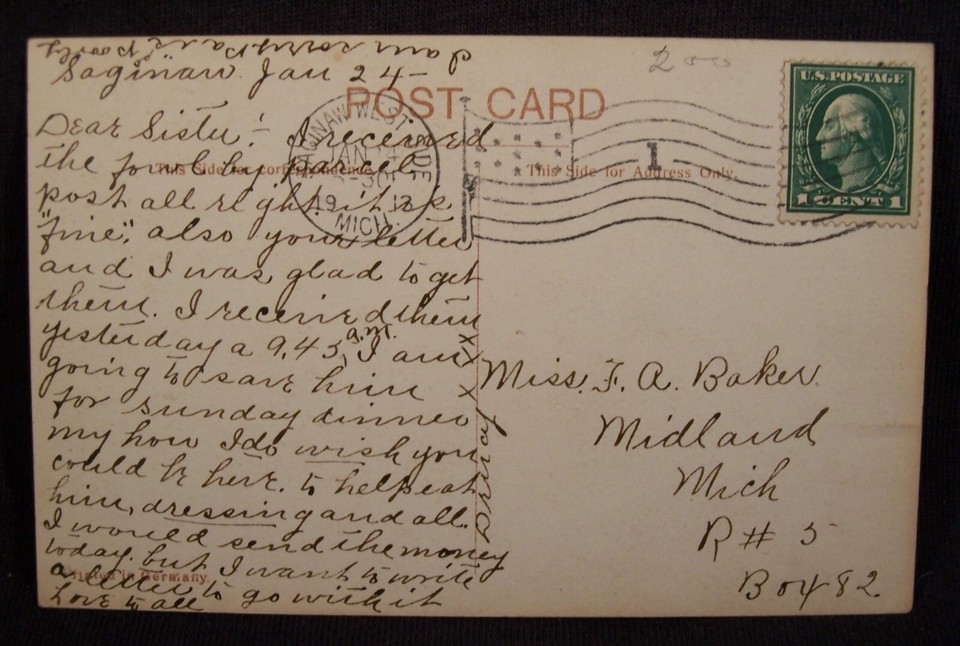 I am sorry Pa is poorly
Saginaw. Jan 24-
POST CARD
Dear Sister:- I received
This Side for correspondence
the fowl by parcel
post all right. it is
"fine". also your letter
and I was glad to get
them. I received them
yesterday a 9,45, a.m. I am
going to save him
for sunday dinner
my how I do wish you
could be here. to help eat
him, dressing and all.
I would send the money
today. but I want to write
Printed in Germany.
a letter to go with it
Love to all
xxx x
SAGINAW WEST SIDE
JAN 24
19 13
MICH.
1
200
U.S. POSTAGE
1 CENT 1
This Side for Address Only.
Miss. F. A. Baker.
Midland
Mich
R # 5
Box 82.